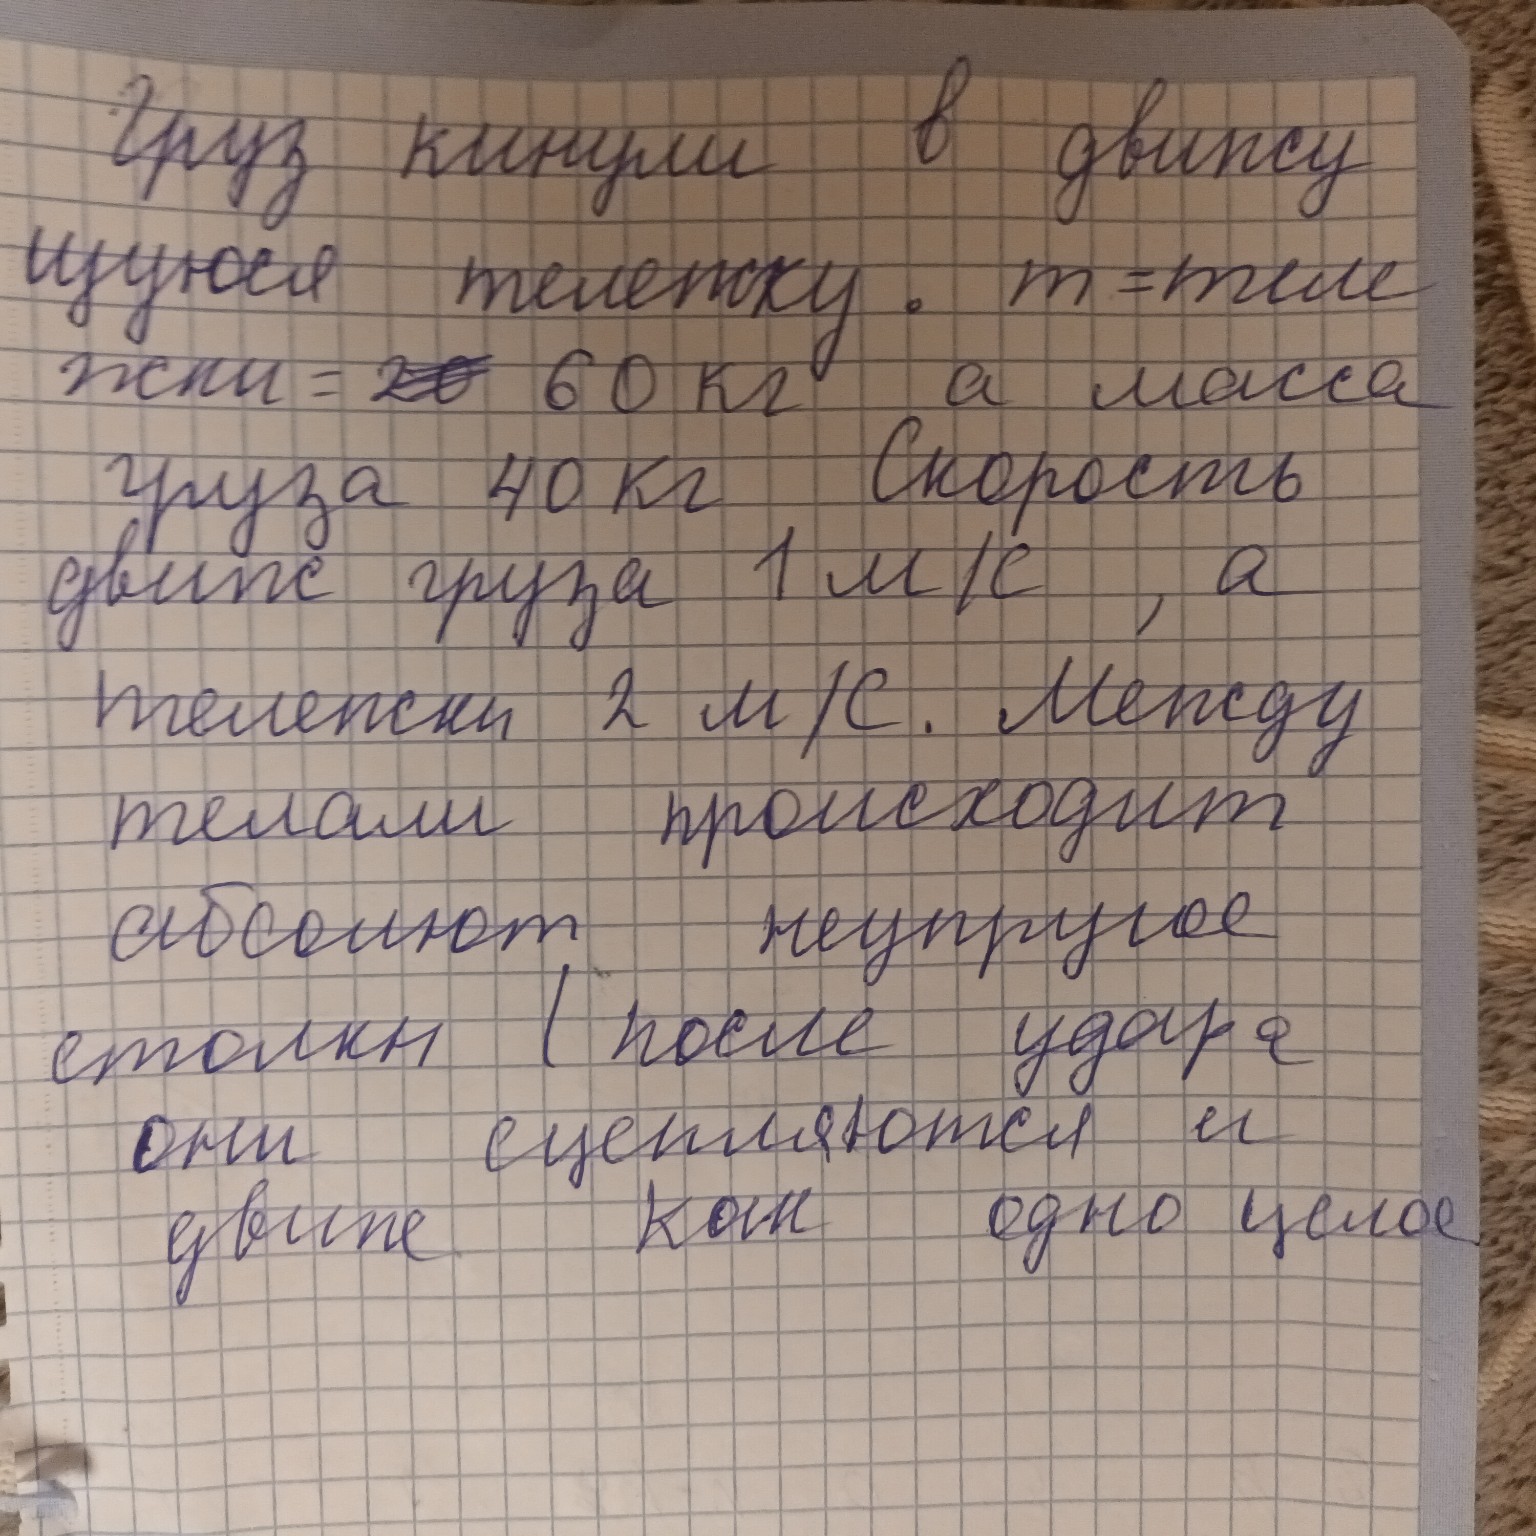 Груз кинули в движу
щуюся тележку. m = теле
жки = 60 кг а масса
груза 40 кг Скорость
движ груза 1 м/с, а
тележки 2 м/с. Между
телами происходит
абсолют неупругое
столкн (после удара
они сцепляются и
движе как одно целое